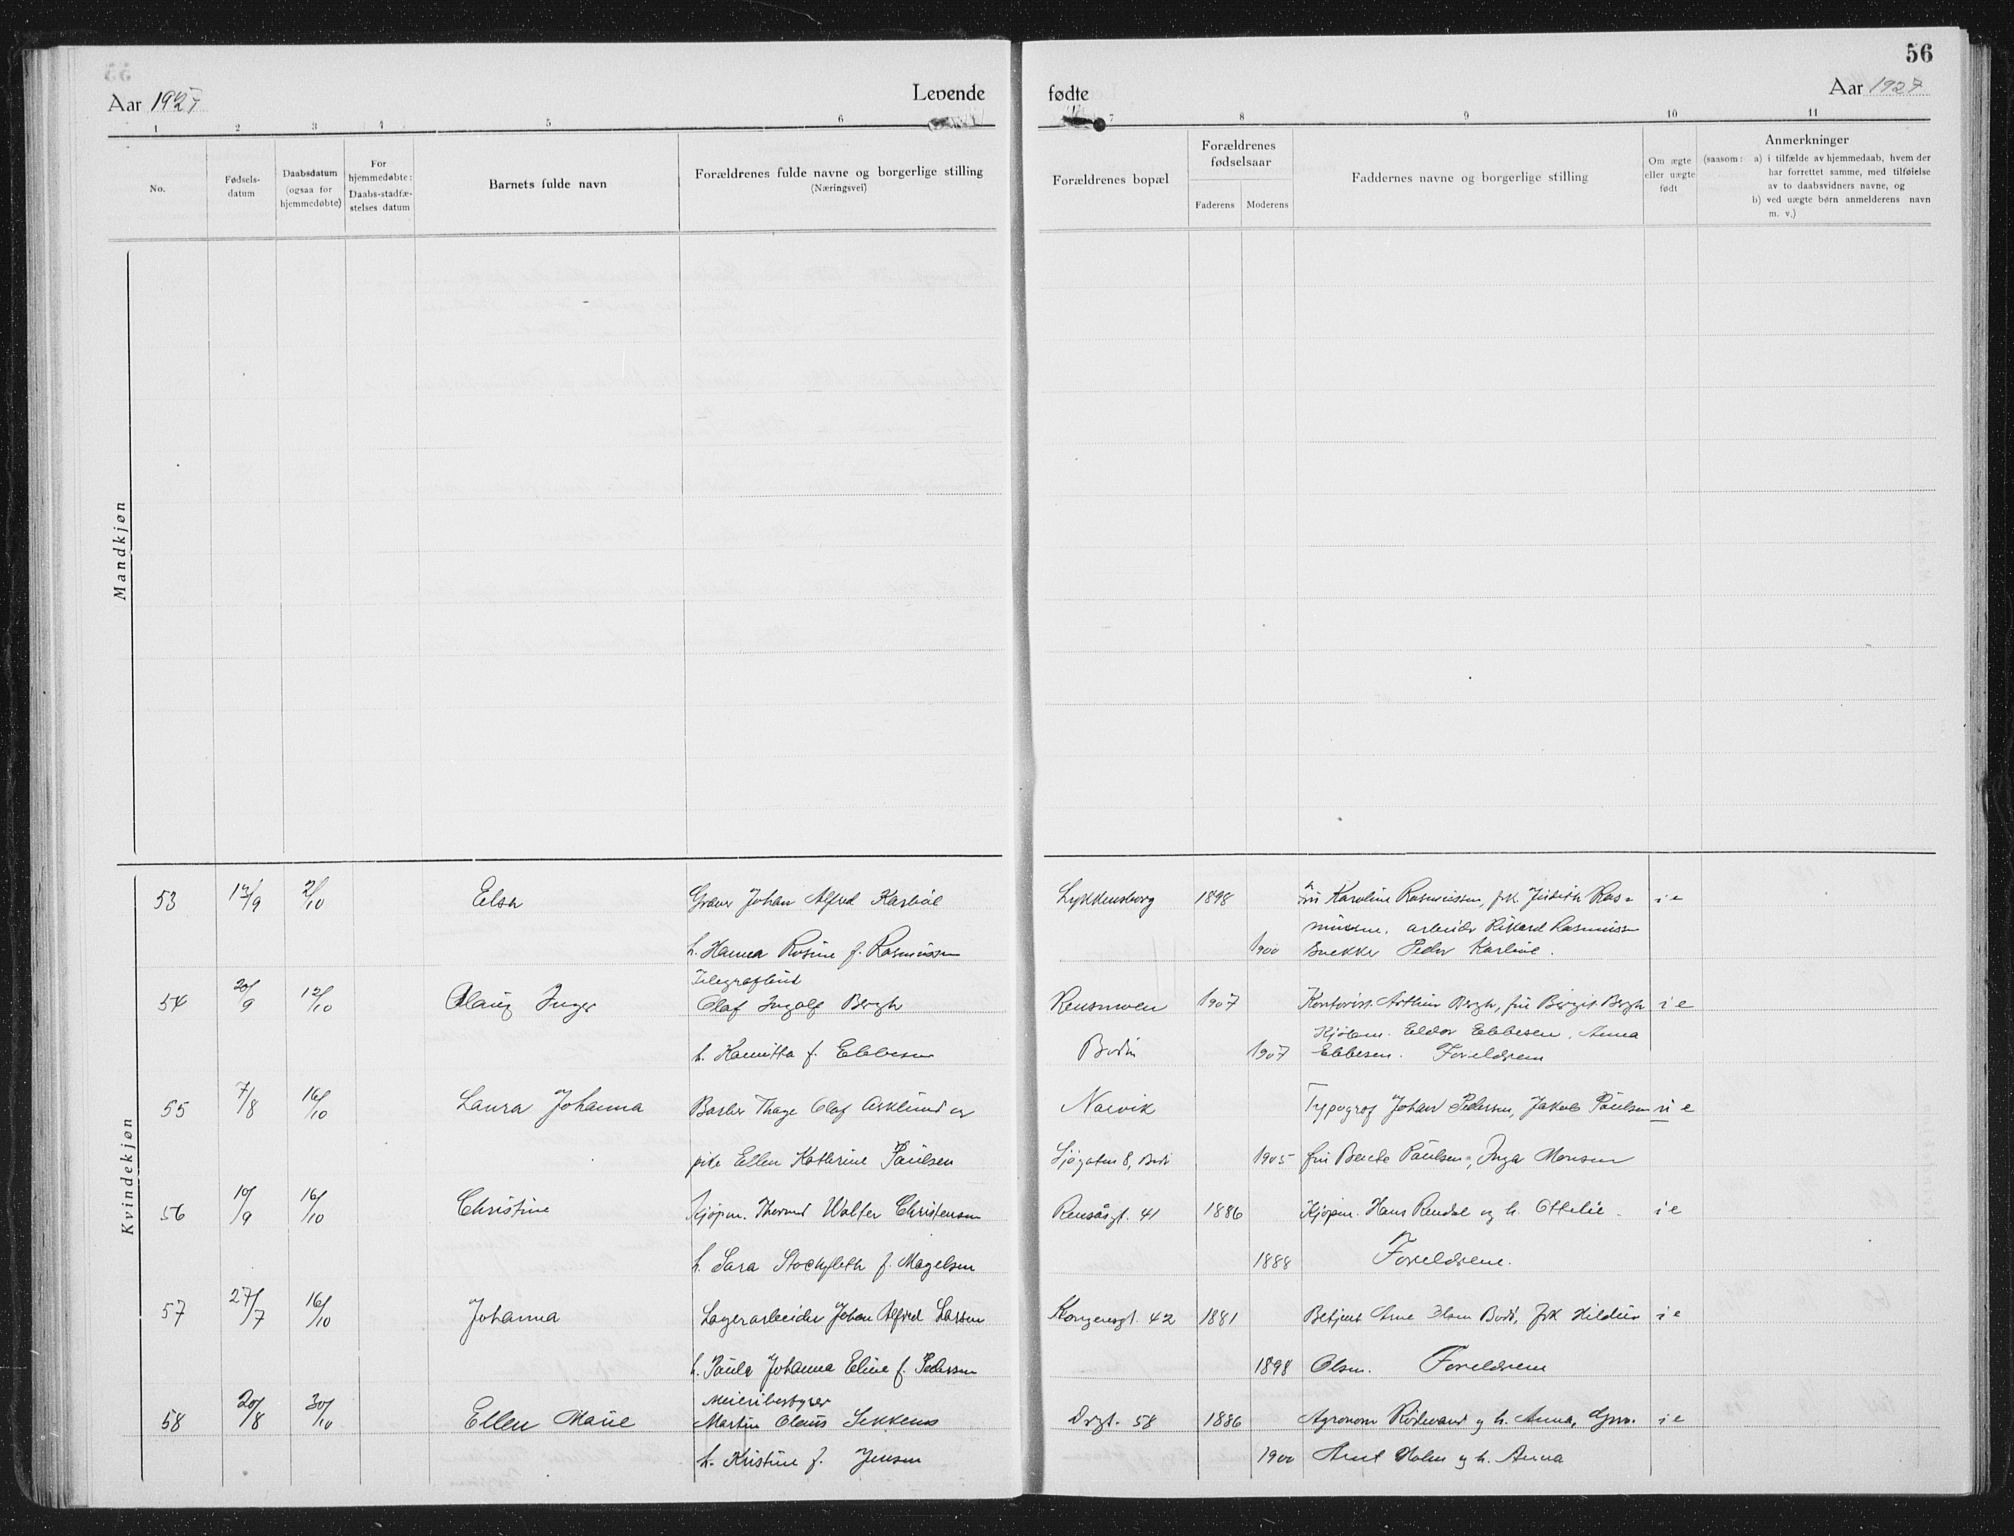 56
Aar 1927
Levende
fødte
Aar 1927
1 2 3 4 5 6 7 8 9 10 11
No.
Fødsels-
datum
Daabsdatum
(ogsaa for
hjemmedøbte)
For
hjemmedøbte:
Daabs-stadfæ-
stelses datum
Barnets fulde navn
Forældrenes fulde navne og borgerlige stilling
(Næringsvei)
Forældrenes bopæl
Forældrenes
fødselsaar
Faderens
Moderens
Faddernes navne og borgerlige stilling
Om ægte
eller uægte
født
Anmerkninger
(saasom: a) i tilfælde av hjemmedaab, hvem der
har forrettet samme, med tilføielse
av to daabsvidners navne, og
b) ved uægte børn anmelderens navn
m. v.)
Mandkjøn
Kvindekjøn
53 17/9 2/10 Elsa Graver Johan Alfred Karbøl Lykkensborg 1898 fru Karoline Rasmussen, frk. Judith Ras- i e
mussen, arbeider Rikard Rasmussen
h. Hanna Rosine f. Rasmussen 1900 Snekker Peder Karline.
Telegrafbud
54 20/9 12/10 Olaug Inger Olaf Ingolf Bergh Rensmoen 1907 Kontorist Arthur Bergh, fru Birgit Bergh i e
Kjøbm. Eldor Ebbesen, Anna
h. Hamitta f. Ebbesen Bodin 1907 Ebbesen. Foreldrene
55 7/8 16/10 Laura Johanna Barber Thage Olaf Asklund og Narvik Typograf Johan Pedersen, Jakob Paulsen u e
pike Ellen Kathrine Paulsen Sjøgaten 8, Bodø 1905 fru Berete Paulsen, Inga Monsen
56 10/9 16/10 Christine Kjøpm. Thorvald Walter Christensen Rensåsgt. 41 1886 Kjøpm. Hans Rendal og h. Ottilie. i e
h. Sara Stockfleth f. Magelsen 1888 Foreldrene.
57 27/7 16/10 Johanna Lagerarbeider Johan Alfred Larsen Kongensgt. 42 1881 Betjent Arne Olsen Bodø, frk Hildur i e
h. Paula Johanna Eline f. Pedersen 1898 Olsen. Foreldrene
Meieribestyrer
58 20/8 30/10 Ellen Marie Martin Claus Sekkenes Drgt. 58 1886 Agronom Rødvand og h. Anna, i e
h. Kristine f. Jensen 1900 Arnt Holm og h. Anna